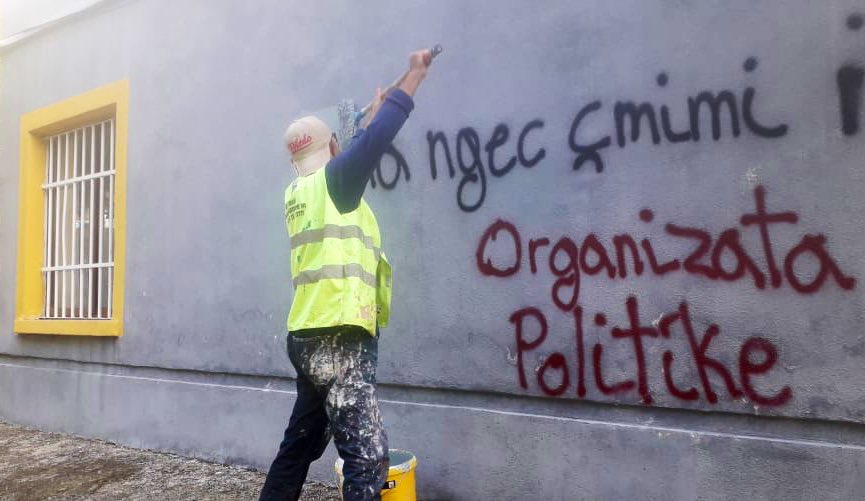 na ngec çmimi i
Organizata
Politike